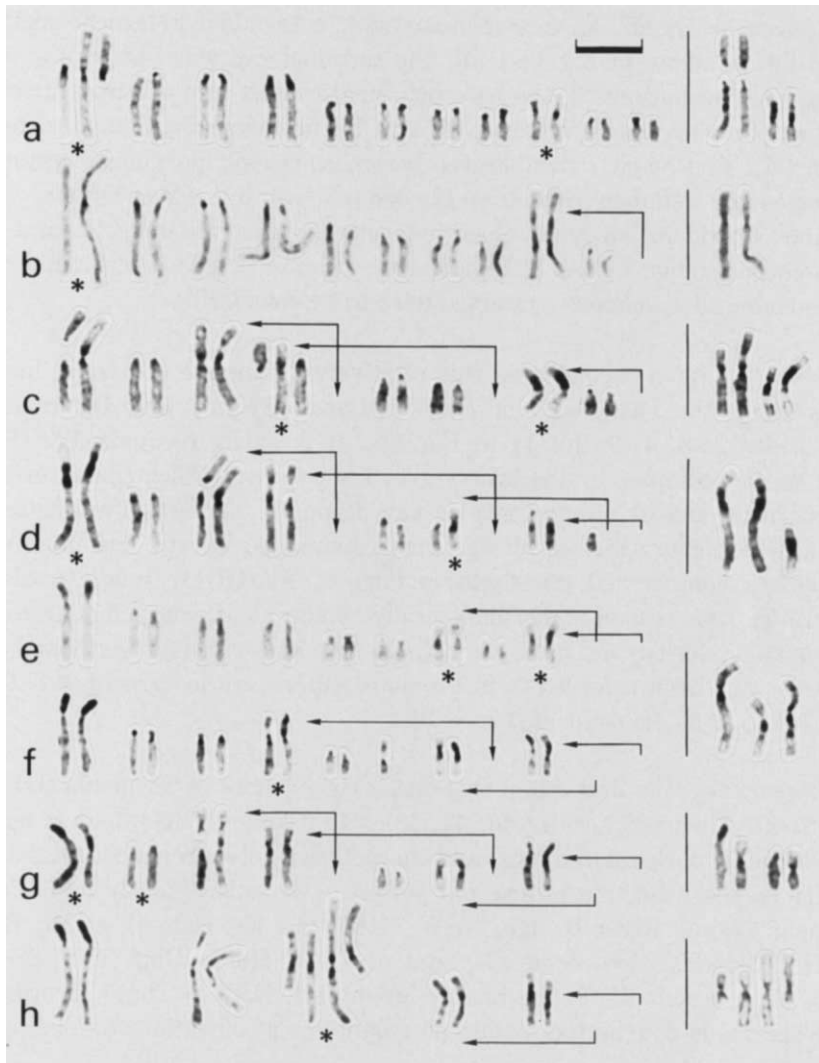 a
* *
b
*
c
* *
d
* *
e
* *
f
*
g
* *
h
*